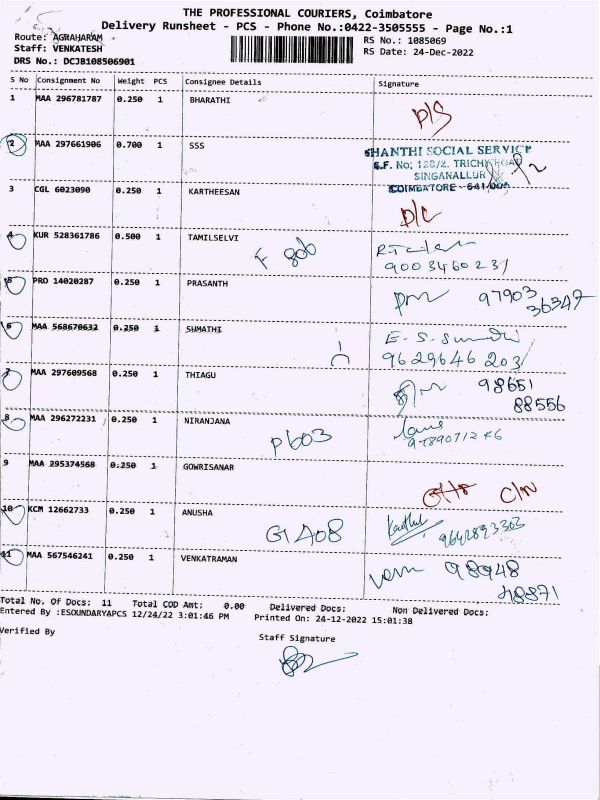 THE PROFESSIONAL COURIERS, Coimbatore
Delivery Runsheet - PCS - Phone No.:0422-3505555 - Page No.:1
Route: AGRAHARAM
RS No.: 1085069
Staff: VENKATESH
RS Date: 24-Dec-2022
DRS No.: DCJB108506901
S No Consignment No Weight PCS Consignee Details Signature
1 MAA 296781787 0.250 1 BHARATHI D/S
2 MAA 297661906 0.700 1 SSS
SHANTHI SOCIAL SERVICE
S.F. No; 128/2. TRICHY ROAD
SINGANALLUR
COIMBATORE - 641 005
3 CGL 6023090 0.250 1 KARTHEESAN D/C
4 KUR 528361786 0.500 1 TAMILSELVI
F 806
9003460231
5 PRO 14020287 0.250 1 PRASANTH
97903
36347
6 MAA 568670632 0.250 1 SUMATHI
9629646203
7 MAA 297609568 0.250 1 THIAGU
98651
88556
8 MAA 296272231 0.250 1 NIRANJANA
P603
9 MAA 295374568 0.250 1 GOWRISANAR
C/N
10 KCM 12662733 0.250 1 ANUSHA
G1408
11 MAA 567546241 0.250 1 VENKATRAMAN
98948
48871
Total No. Of Docs: 11 Total COD Amt: 0.00 Delivered Docs: Non Delivered Docs:
Entered By :ESOUNDARYAPCS 12/24/22 3:01:46 PM Printed On: 24-12-2022 15:01:38
Verified By
Staff Signature